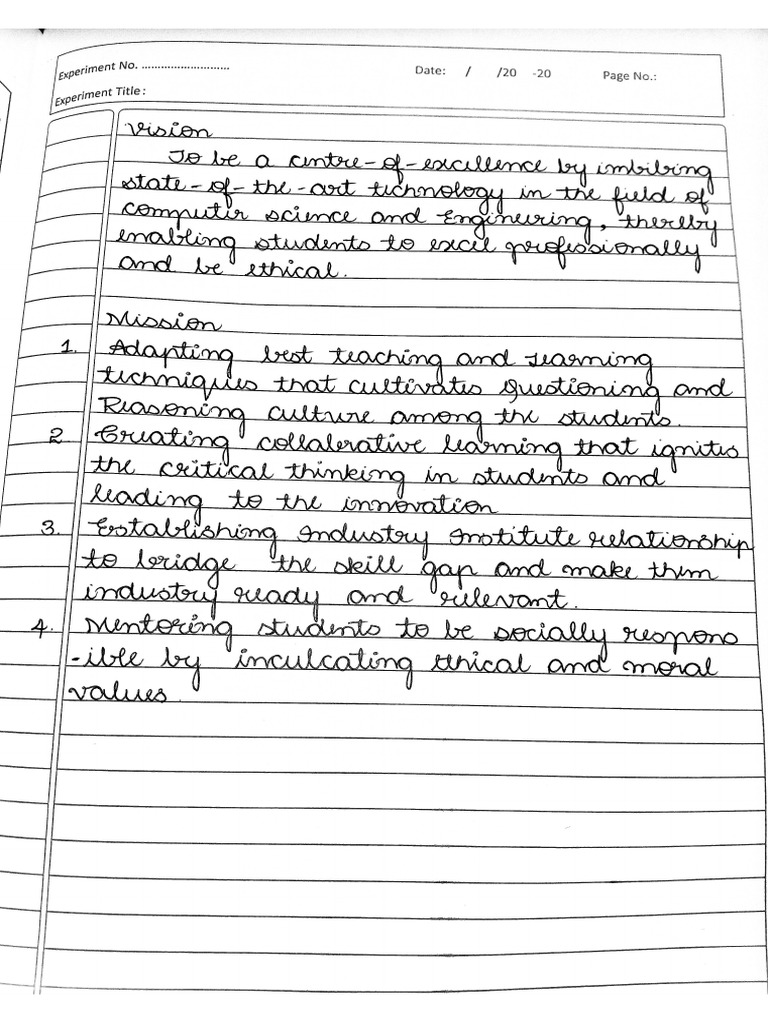 Experiment No. ............................
Date: / /20 -20 Page No.:
Experiment Title:
Vision
To be a centre-of-excellence by imbibing
state-of-the-art technology in the field of
computer science and Engineering, thereby
enabling students to excel professionally
and be ethical.
Mission
1. Adapting best teaching and learning
techniques that cultivates Questioning and
Reasoning culture among the students.
2 Creating collaborative learning that ignites
the critical thinking in students and
leading to the innovation
3. Establishing Industry Institute relationship
to bridge the skill gap and make them
industry ready and relevant.
4. Mentoring students to be socially respons
-ible by inculcating ethical and moral
values.